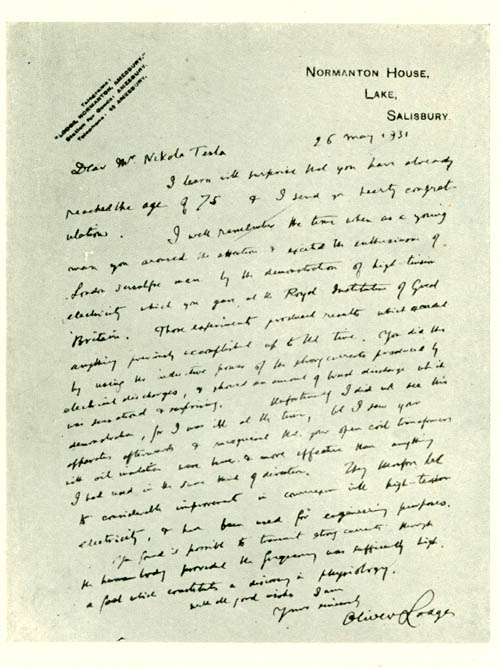 Telegrams:
"LODGE, NORMANTON, AMESBURY."
Station for Goods: AMESBURY.
Telephone: 63 AMESBURY.
NORMANTON HOUSE,
LAKE,
SALISBURY.
26 May 1931
Dear Mr Nikola Tesla
I learn with surprise that you have already
reached the age of 75 & I send you hearty congrat-
ulations. I well remember the time when as a young
man you aroused the attention & excited the enthusiasm of
London scientific men by the demonstration of high-tension
electricity which you gave at the Royal Institution of Great
Britain. Those experiments produced results which exceeded
anything previously accomplished up to the time. You did this
by using the inductive power of the strong currents produced by
electrical discharges, & showed an amount of brush discharge which
was sensational & surprising. Unfortunately I did not see this
demonstration, for I was ill at the time, but I saw your
apparatus afterwards & recognised that your open coil transformers
with oil insulation were more effective than anything
I had used in the same kind of direction. They therefore led
to considerable improvement in connexion with high-tension
electricity, & have been used for engineering purposes.
You found it possible to transmit strong currents through
the human body provided the frequency was sufficiently high,
a fact which constitutes a discovery in physiology.
With all good wishes I am
Yours sincerely
Oliver Lodge